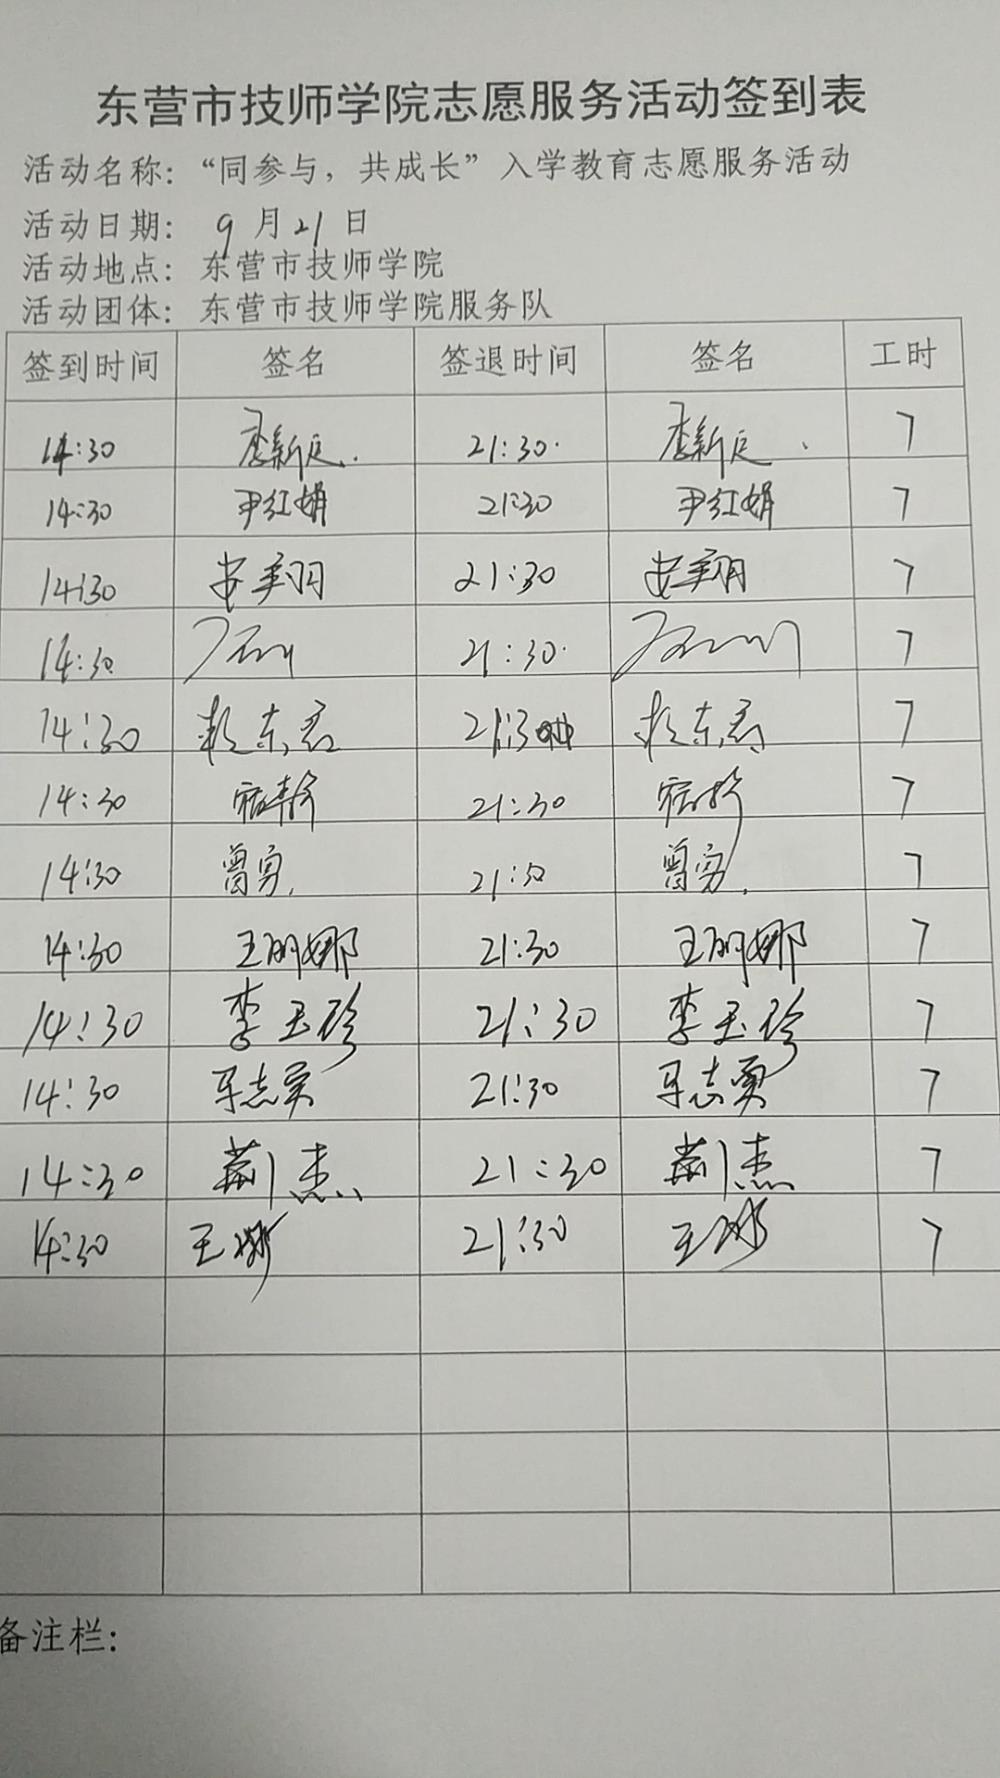 东营市技师学院志愿服务活动签到表
活动名称：“同参与，共成长”入学教育志愿服务活动
活动日期： 9 月 21 日
活动地点： 东营市技师学院
活动团体： 东营市技师学院服务队
签到时间 签名 签退时间 签名 工时
14:30 21:30 7
14:30 尹红娟 21:30 尹红娟 7
14:30 安翔羽 21:30 7
14:30 21:30 7
14:30 21:30 7
14:30 21:30 7
14:30 曾勇 21:30 曾勇 7
14:30 王明娜 21:30 王明娜 7
14:30 李玉珍 21:30 李玉珍 7
14:30 21:30 7
14:30 荆杰 21:30 荆杰 7
14:30 王 21:30 王 7
备注栏：